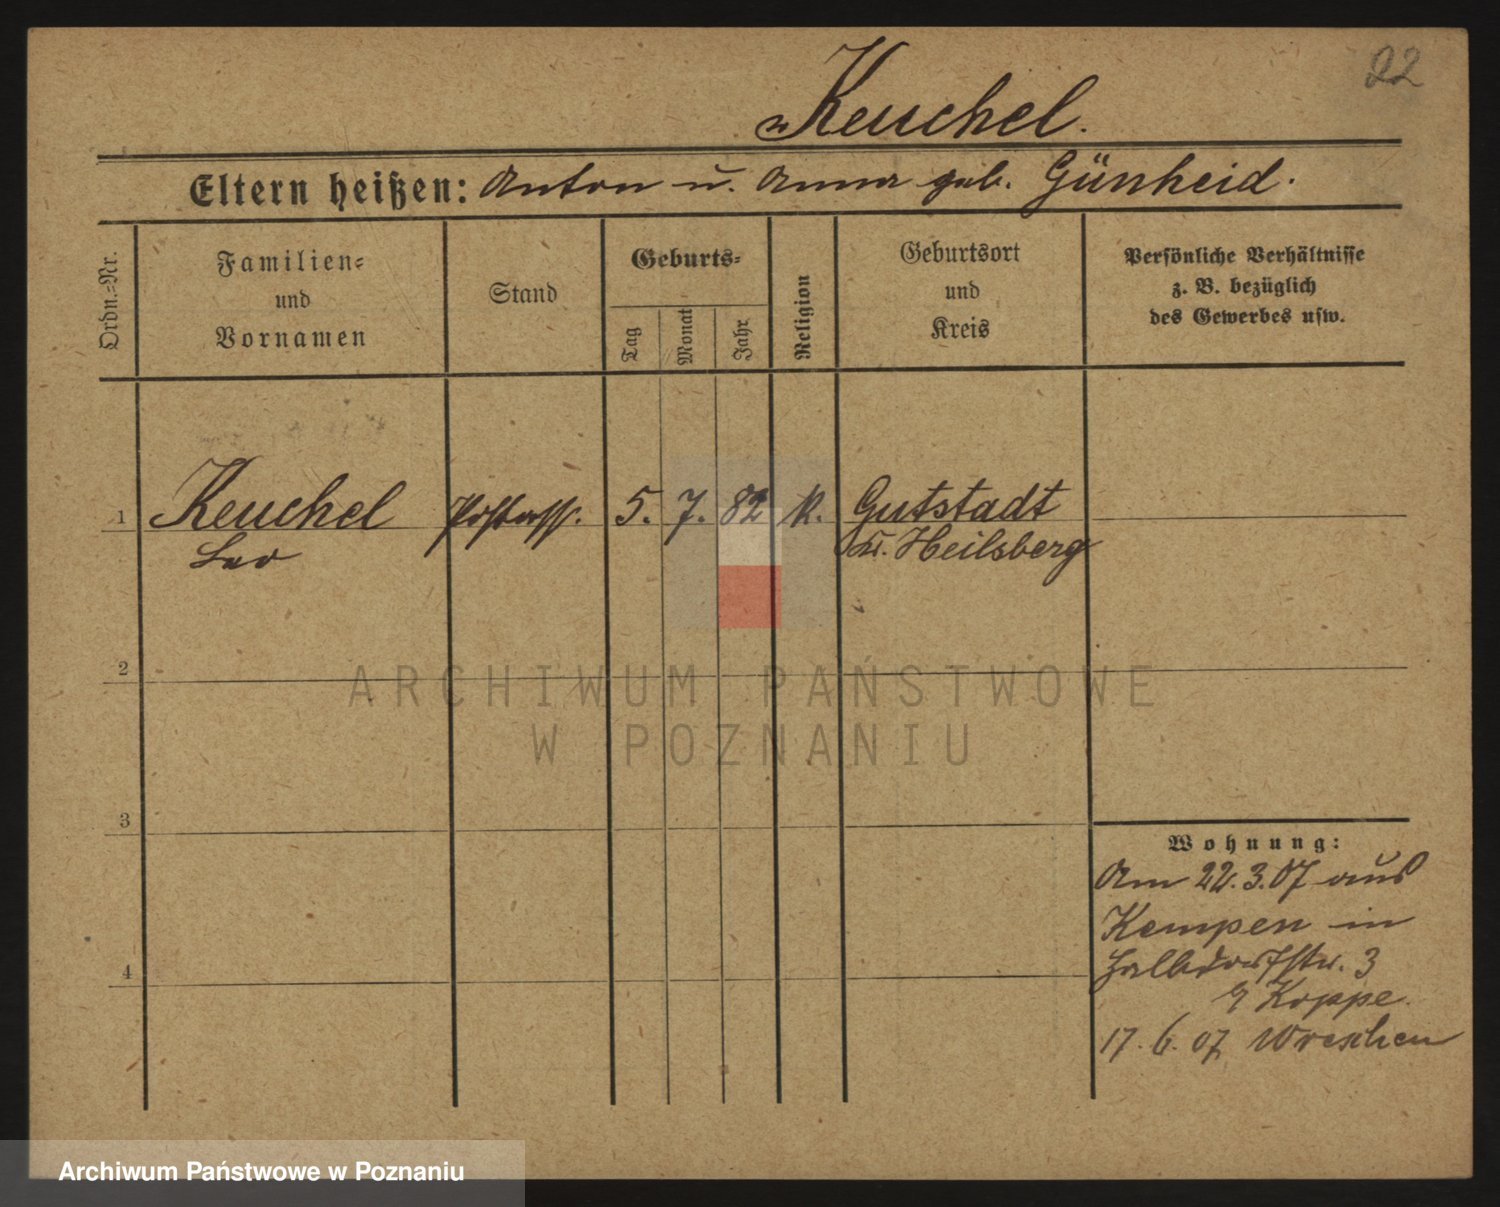 22
Keuchel.
Eltern heißen: Anton u. Anna geb. Günheid.
Ordn.=Nr.
Familien=
und
Vornamen
Stand
Geburts=
Tag
Monat
Jahr
Religion
Geburtsort
und
Kreis
Persönliche Verhältnisse
z. B. bezüglich
des Gewerbes usw.
1 Keuchel Postass. 5. 7. 82 k. Gutstadt
Leo Kr. Heilsberg
2
3
4
Wohnung:
Am 22.3.07 aus
Kempen in
Halbdorfstr. 3
b Koppe.
17. 6. 07 Wreschen
ARCHIWUM PAŃSTWOWE
W POZNANIU
Archiwum Państwowe w Poznaniu